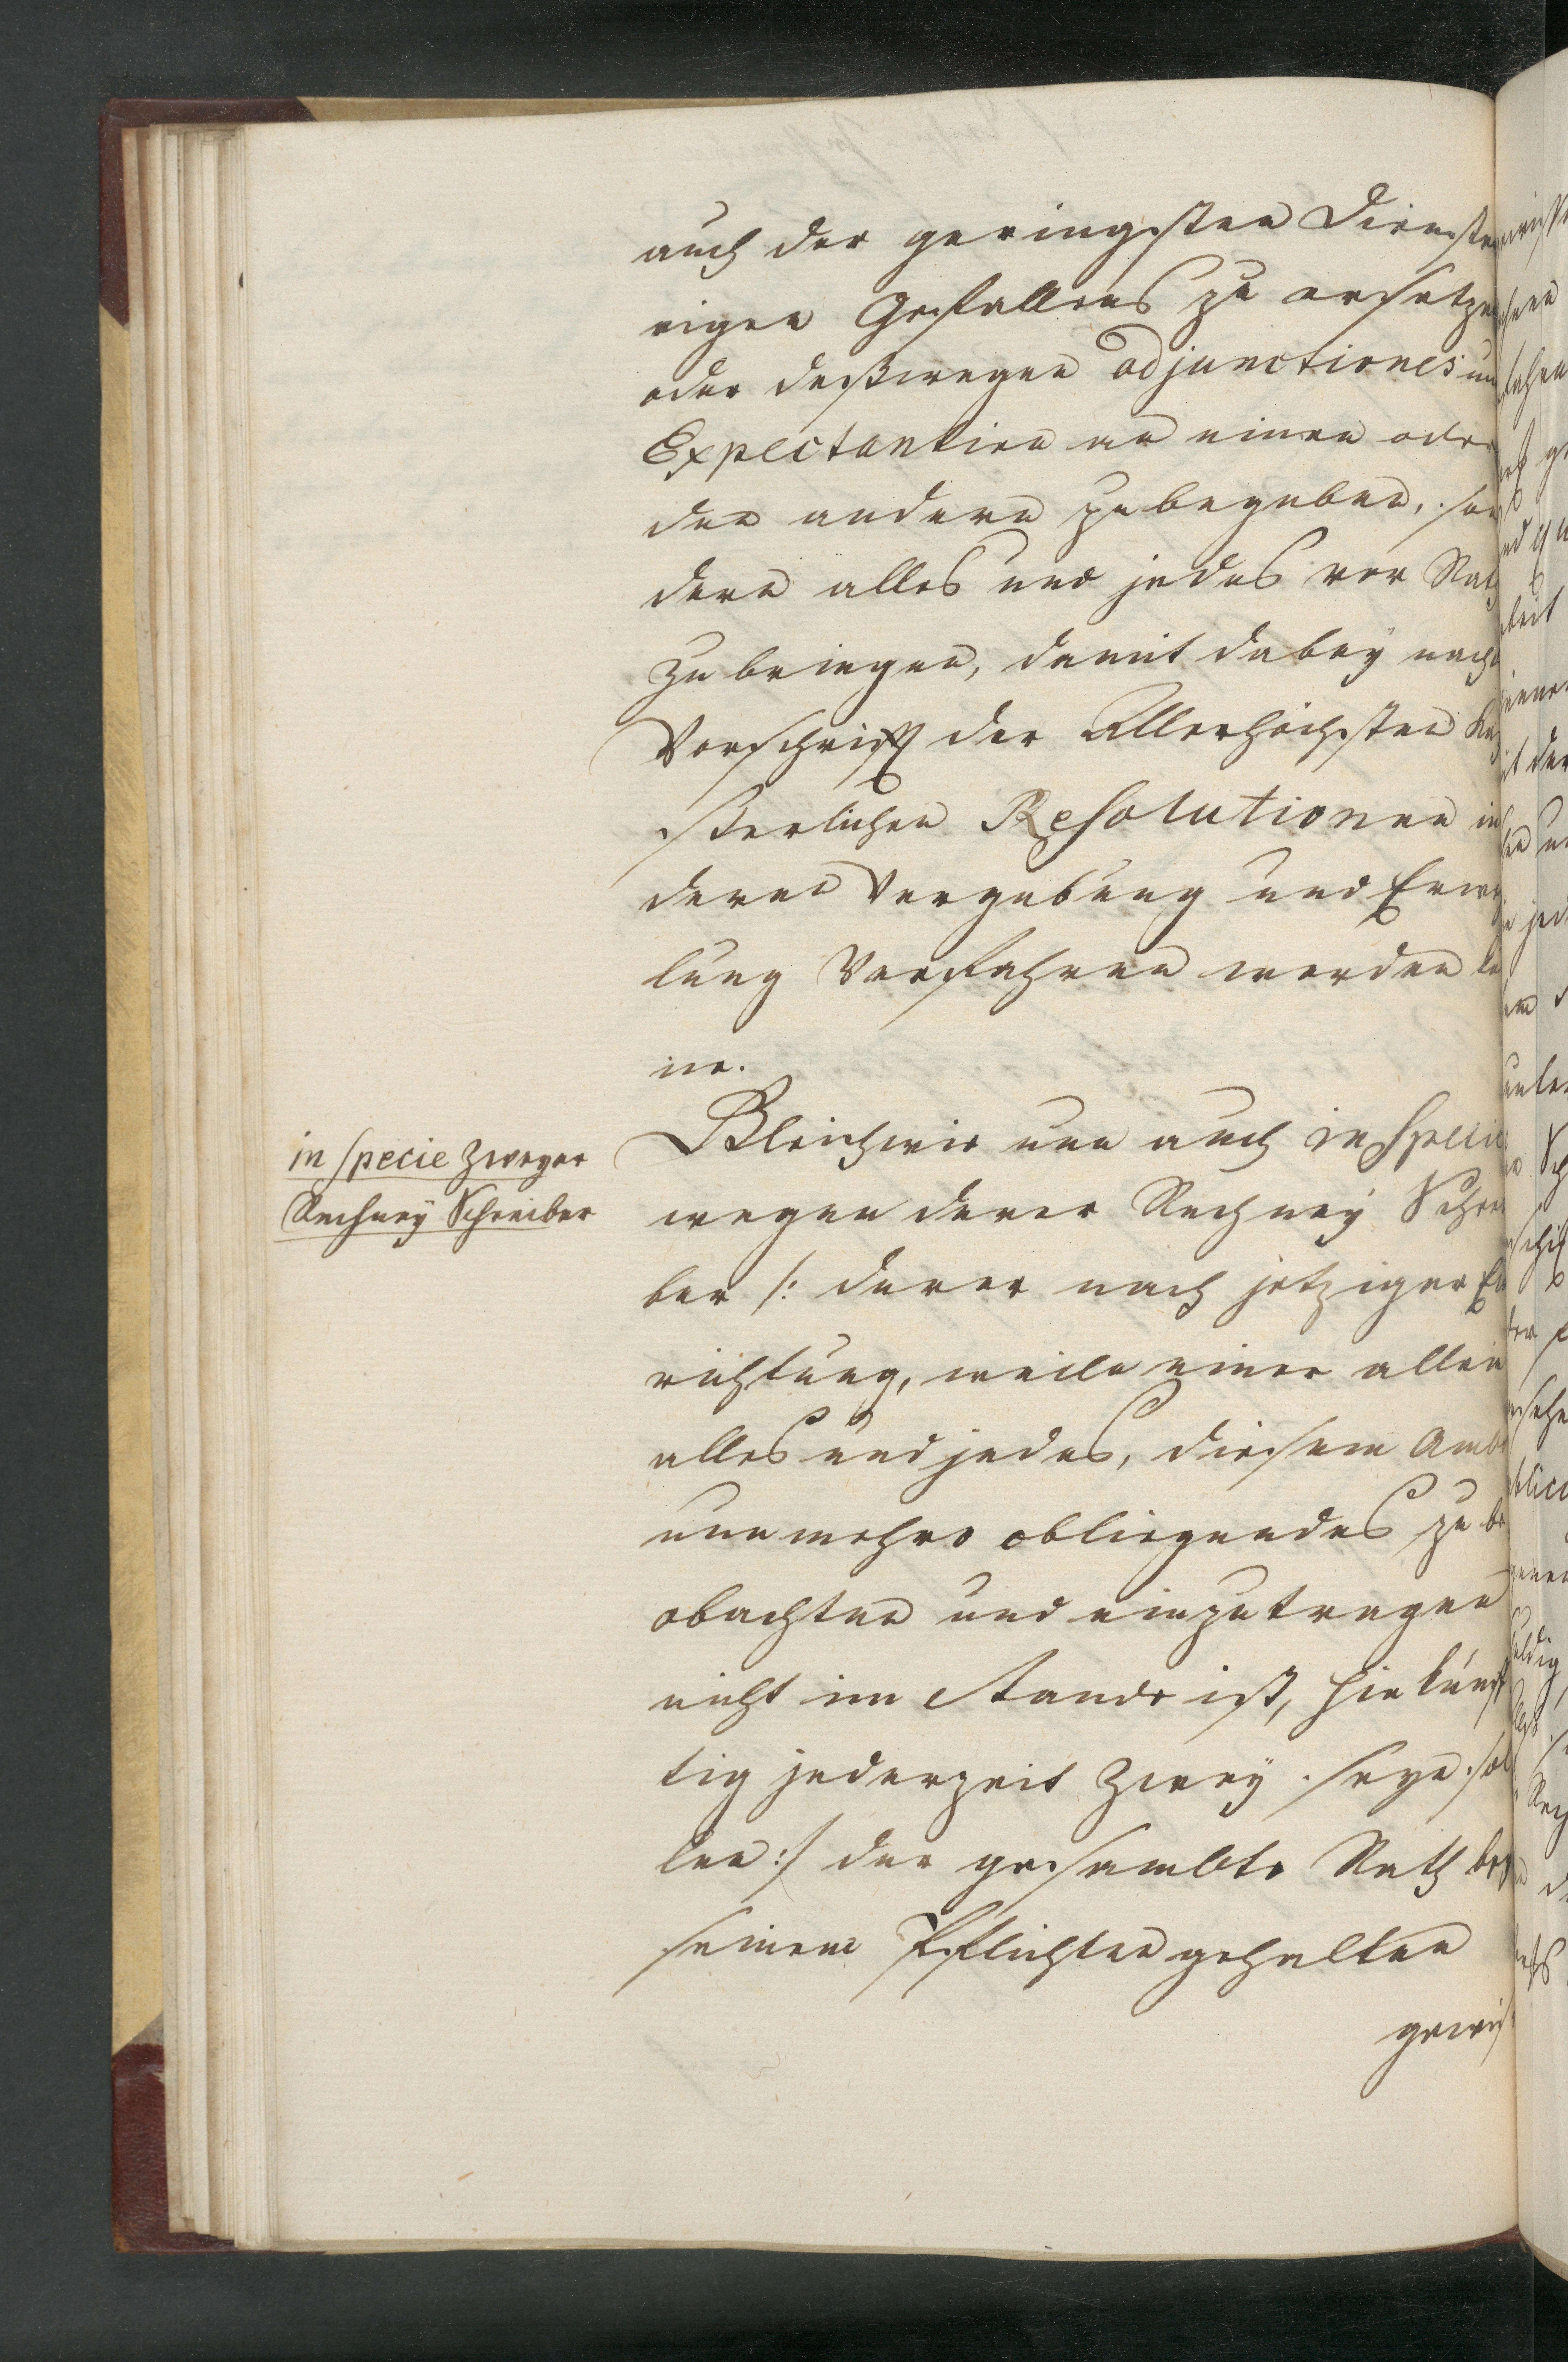 auch der geringsten Diensten
eigen Gefallens zu ersetzen
oder deßwegen adjunctiones und
Expectantien an einen oder
den andern zubegeben, son
dern alles und jedes vor Rath
zu bringen, damit dabey nach
Vorschrifft der Allerhöchsten Kay
ßerlichen Resolutionen in
deren Vergebung und Erwe
lung Verfahren werden kön
ne.
in specie zweyer
Rechney Schreiber
Gleichwie nun auch in specie
wegen derer Rechney Schrei
ber /: derer nach jetziger Ein
richtung, weiln einer allein
alles und jedes, diesem Ambt
nunmehro obliegendes zu be
obachten und einzutragen
nicht im Stande ist, hinkünf
tig jederzeit Zwey seyn sol
len :/ der gesambte Rath bey
seinen Pflichten gehalten
gewis